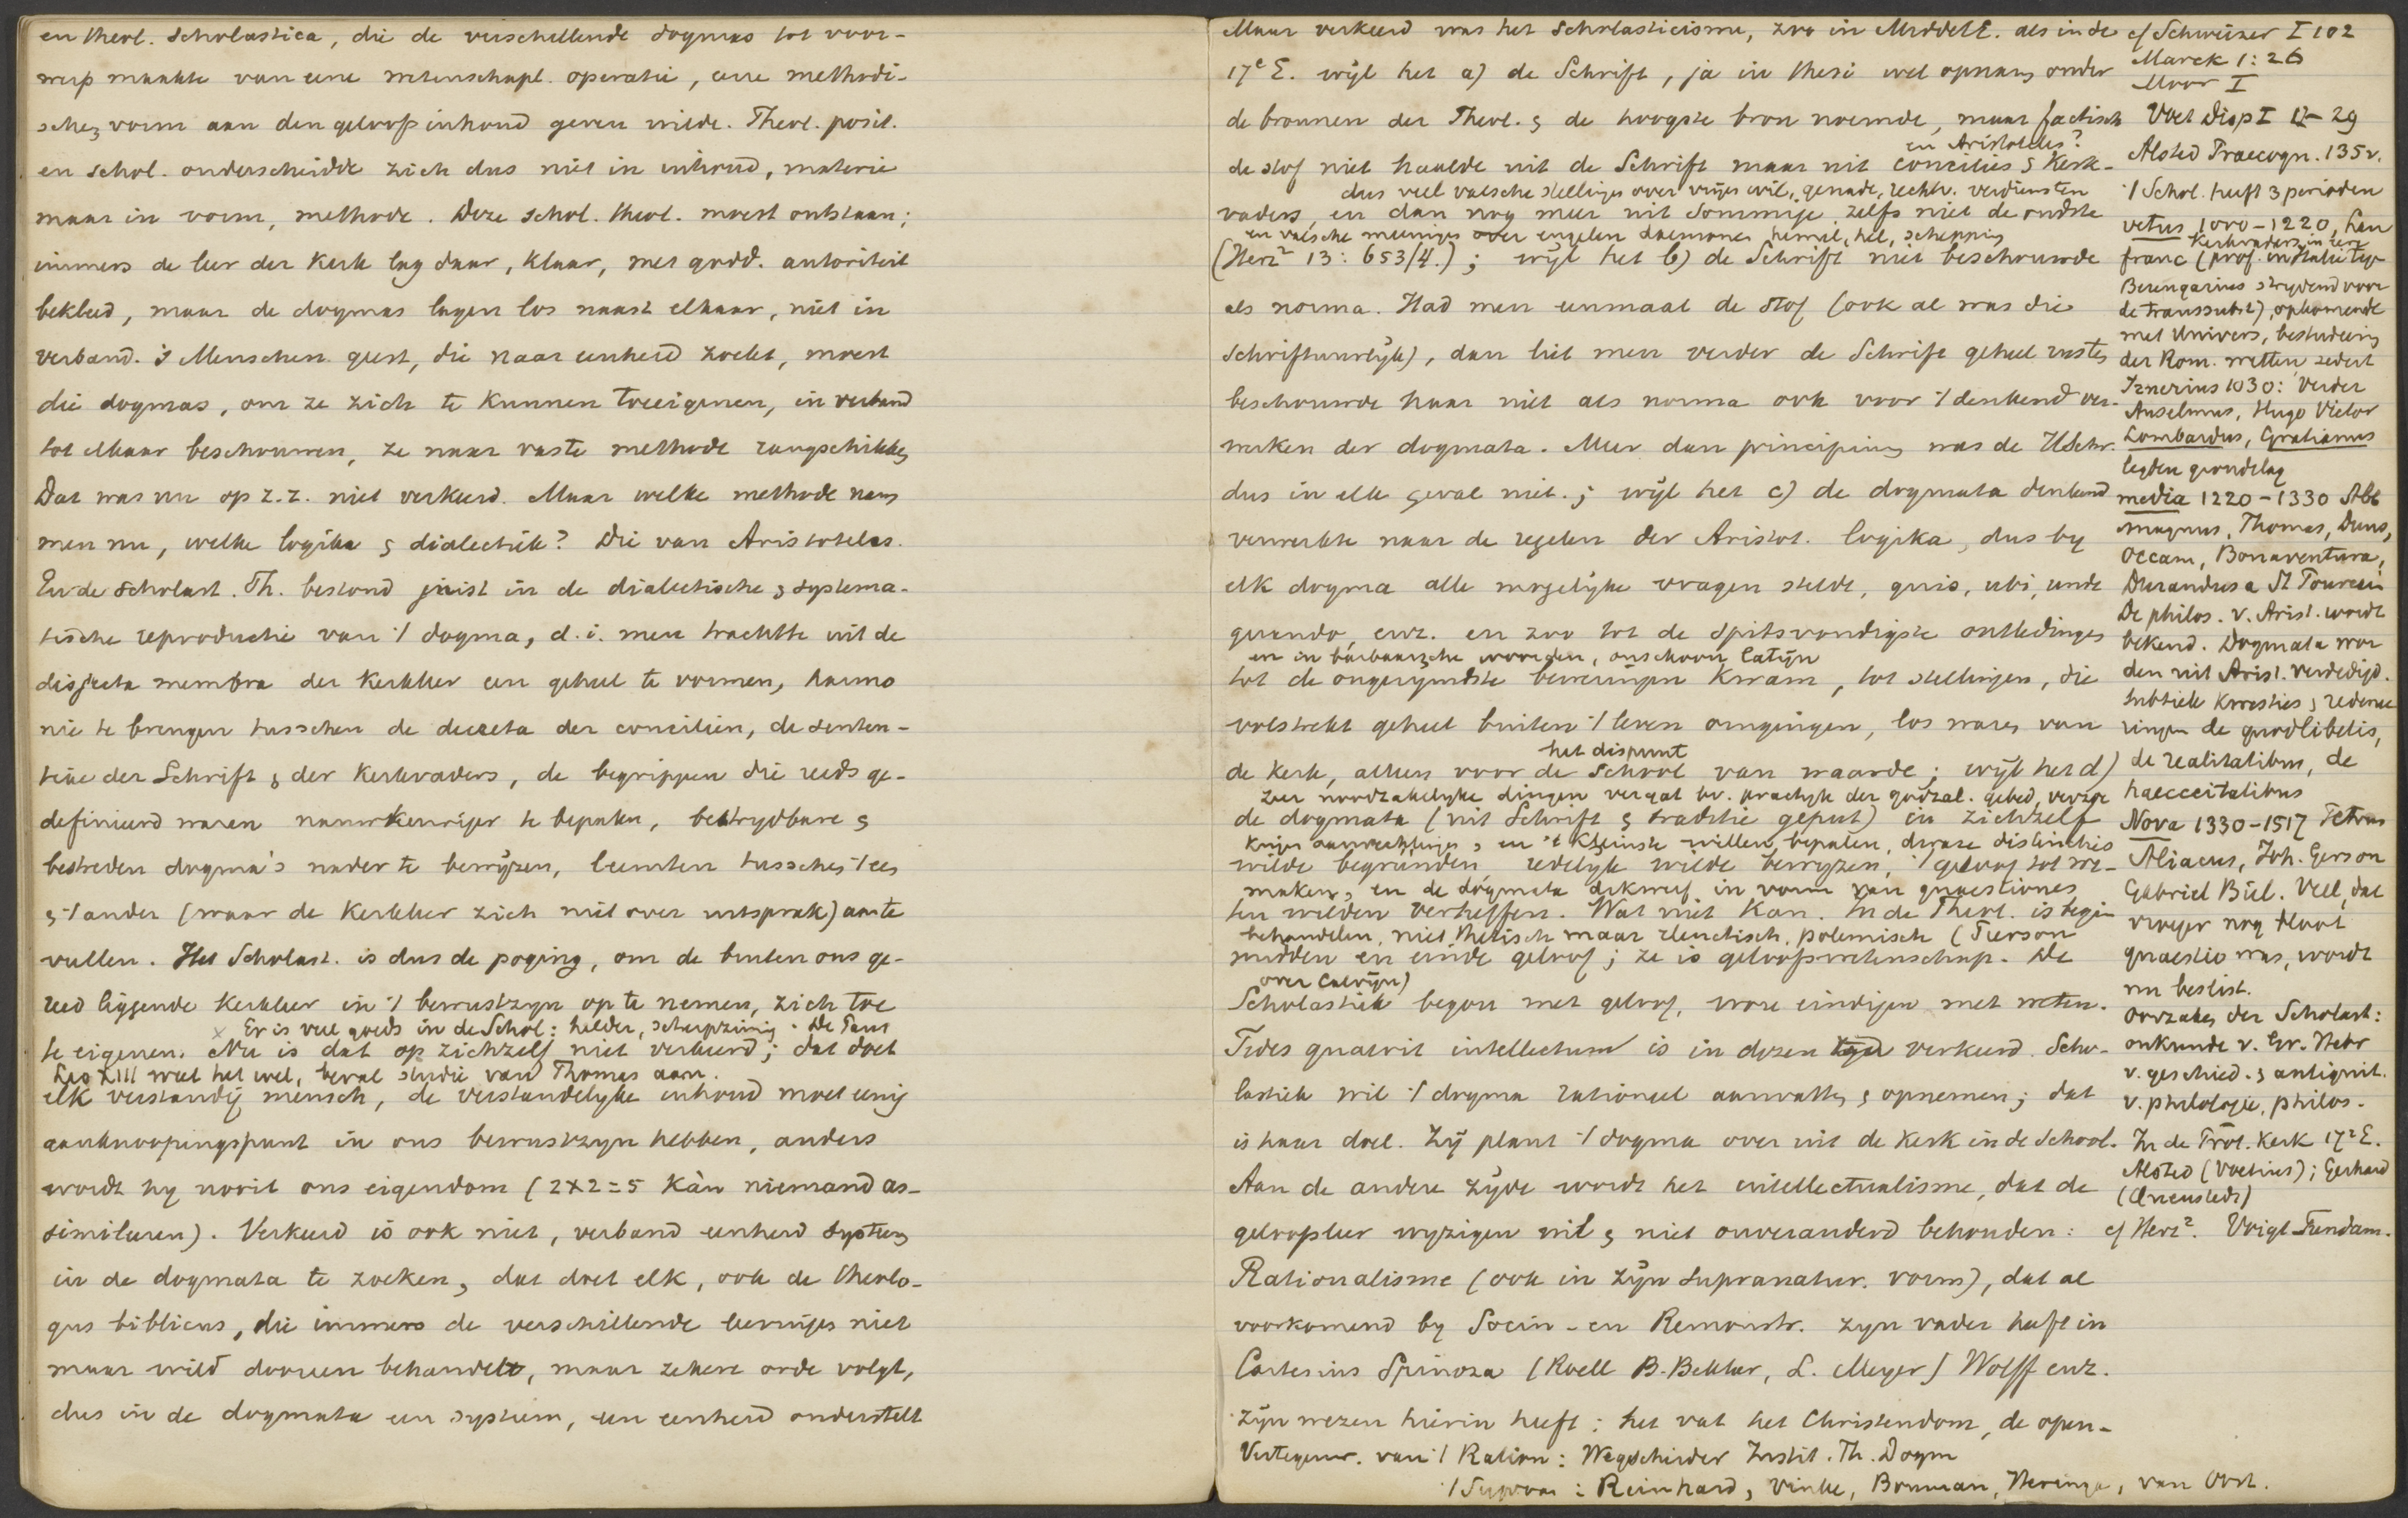 en theol. Scholastica, die de verschillende dogmas tot voor-
werp maakte van eene wetenschapl. operatie, eene methodi-
schen vorm aan den geloofsinhoud geven wilde. Theol. posit.
en schol. onderscheidde zich dus niet in inhoud, materie
maar in vorm, methode. Deze schol. theol. moest ontstaan;
immers de leer der Kerk lag daar, klaar, met godd. autoriteit
bekleed, maar de dogmas lagen los naast elkaar, niet in
verband. 's Menschen geest, die naar eenheid zoekt, moest
die dogmas, om ze zich te kunnen toeeigenen, in verband
tot elkaar beschouwen, ze naar vaste methode rangschikken
Dat was nu op z.z. niet verkeerd. Maar welke methode nam
men nu, welke logika & dialectiek? Die van Aristoteles.
En de Scholast. Th. bestond juist in de dialectische & systema-
tische reproductie van 't dogma, d.i. men trachtte uit de
disjecta membra der Kerkleer een geheel te vormen, harmo
nie te brengen tusschen de decreta der conciliën, de senten-
tiae der Schrift & der Kerkvaders, de begrippen die reeds ge-
definieerd waren nauwkeuriger te bepalen, bestrydbare &
bestreden dogma's nader te bewyzen, leemten tusschen 't een
& 't ander (waar de Kerkleer zich niet over uitsprak) aan te
vullen. Het Scholast. is dus de poging, om de buiten ons ge-
reed liggende Kerkleer in 't bewustzyn op te nemen, zich toe
x Er is veel goeds in de Schol: helder, scherpzinnig. De Paus
te eigenen. Nu is dat op zichzelf niet verkeerd; dat doet
Leo XIII weet het wel, beval studie van Thomas aan.
elk verstandig mensch, de verstandelyke inhoud moet eenig
aanknoopingspunt in ons bewustzyn hebben, anders
wordt hy nooit ons eigendom (2x2=5 kàn niemand as-
similuren). Verkeerd is ook niet, verband eenheid system
in de dogmata te zoeken, dat doet elk, ook de theolo-
gus biblicus, die immers de verschillende leeringen niet
maar wild dooreen behandelt, maar zekere orde volgt,
dus in de dogmata een systeem, een eenheid onderstelt
Maar verkeerd was het Scholasticisme, zoo in MiddelE. als in de
17e E. wyl het a) de Schrift, ja in thesi wel opnam onder
de bronnen der Theol. & de hoogste bron noemde, maar factisch
en Aristoteles?
de stof niet haalde uit de Schrift maar uit concilies & Kerk-
dus veel valsche stellingen over vryen wil, genade, rechtv. verdiensten
vaders, en dan nog meer uit sommige, zelfs niet de oudste
en valsche meeningen over engelen daemones hemel, hel, schepping
(Herz² 13: 653/4.); wyl het b) de Schrift niet beschouwde
als norma. Had men eenmaal de stof (ook al was die
Schriftuurlyk), dan liet men verder de Schrift geheel rusten
beschouwde haar niet als norma ook voor 't denkend ver-
werken der dogmata. Meer dan principium was de HSchr.
dus in elk geval niet.; wyl het c) de dogmata denkend
verwerkte naar de regelen der Aristot. logika, dus by
elk dogma alle mogelyke vragen stelde, quis, ubi, unde
quando, enz. en zoo tot de spitsvondigste ontledingen
en in barbaarsche woorden, onschoon latyn
tot de ongerymdste beweringen kwam, tot stellingen, die
volstrekt geheel buiten 't leven omgingen, los waren van
het dispuut
de Kerk, alleen voor de School van waarde; wyl het d)
zeer noodzakelyke dingen vergat bv. practyk der godzal. gebed,
de dogmata (uit Schrift & traditie geput) in zichzelf
en 't kleinste willen bepalen, dwaze distincties
wilde begründen, redelyk wilde bewyzen, 't geloof tot we-
maken, en de dogmata dikwerf in vorm van quaestiones
ten wilden verheffen. Wat niet kan. In de Theol. is begin
behandelen, niet thetisch maar elenctisch, polemisch (Pierson
midden en einde geloof; ze is geloofswetenschap. De
over Calvyn)
Scholastiek begon met geloof, wou eindigen met weten.
Fides quaerit intellectum is in dezen verkeerd. Scho-
lastiek wil 't dogma rationeel aanvatten & opnemen; dat
is haar doel. Zy plant 't dogma over uit de Kerk in de School.
Aan de andere zyde wordt het intellectualisme, dat de
geloofsleer wyzigen wil & niet onveranderd behouden:
Rationalisme (ook in zyn supranatur. vorm), dat al
voorkomend by Socin- en Remonstr. zyn vader heeft in
Cartesius Spinoza (Roell B. Bekker, L. Meyer) Wolff enz.
zyn wezen hierin heeft: het vat het Christendom, de open-
Vertegenw. van 't Ration: Wegscheider Instit. Th. Dogm
't Supran: Reinhard, Vinke, Bouman, Heringa, van Oort.
cf Schweizer I 102
Marck 1: 26
Moor I
Voet Disp I 12-29
Alsted Praecogn. 135v.
't Schol. heeft 3 perioden
vetus 1000-1220, Lan
franc (prof.
Berengarius strydend voor
de transsubst), opkomende
met Univers, bestudeering
der Rom. wetten sedert
Irnerius 1030: Verder
Anselmus, Hugo Victor
Lombardus, Gratianus
legden grondslag
media 1220-1330 Alb
magnus, Thomas, Duns,
Occam, Bonaventura,
Durandus a St
De philos. v. Arist. wordt
bekend. Dogmata wor
den uit Arist. verdedigd.
subtiele kwesties & redenee
ringen de quodlibetis,
de realitatibus, de
haecceitatibus
Nova 1330-1517 Petrus
Aliacus, Joh. Gerson
Gabriel Biel. Veel, dat
vroeger nog
quaestio was, wordt
nu beslist.
Oorzaken der Scholast:
onkunde v. Gr. Hebr
v. geschied. & antiquit.
v. philologie, philos.
In de Prot. Kerk 17e E.
Alsted (Voetius); Gerhard
(Quenstedt)
cf Herz². Voigt Fundam.